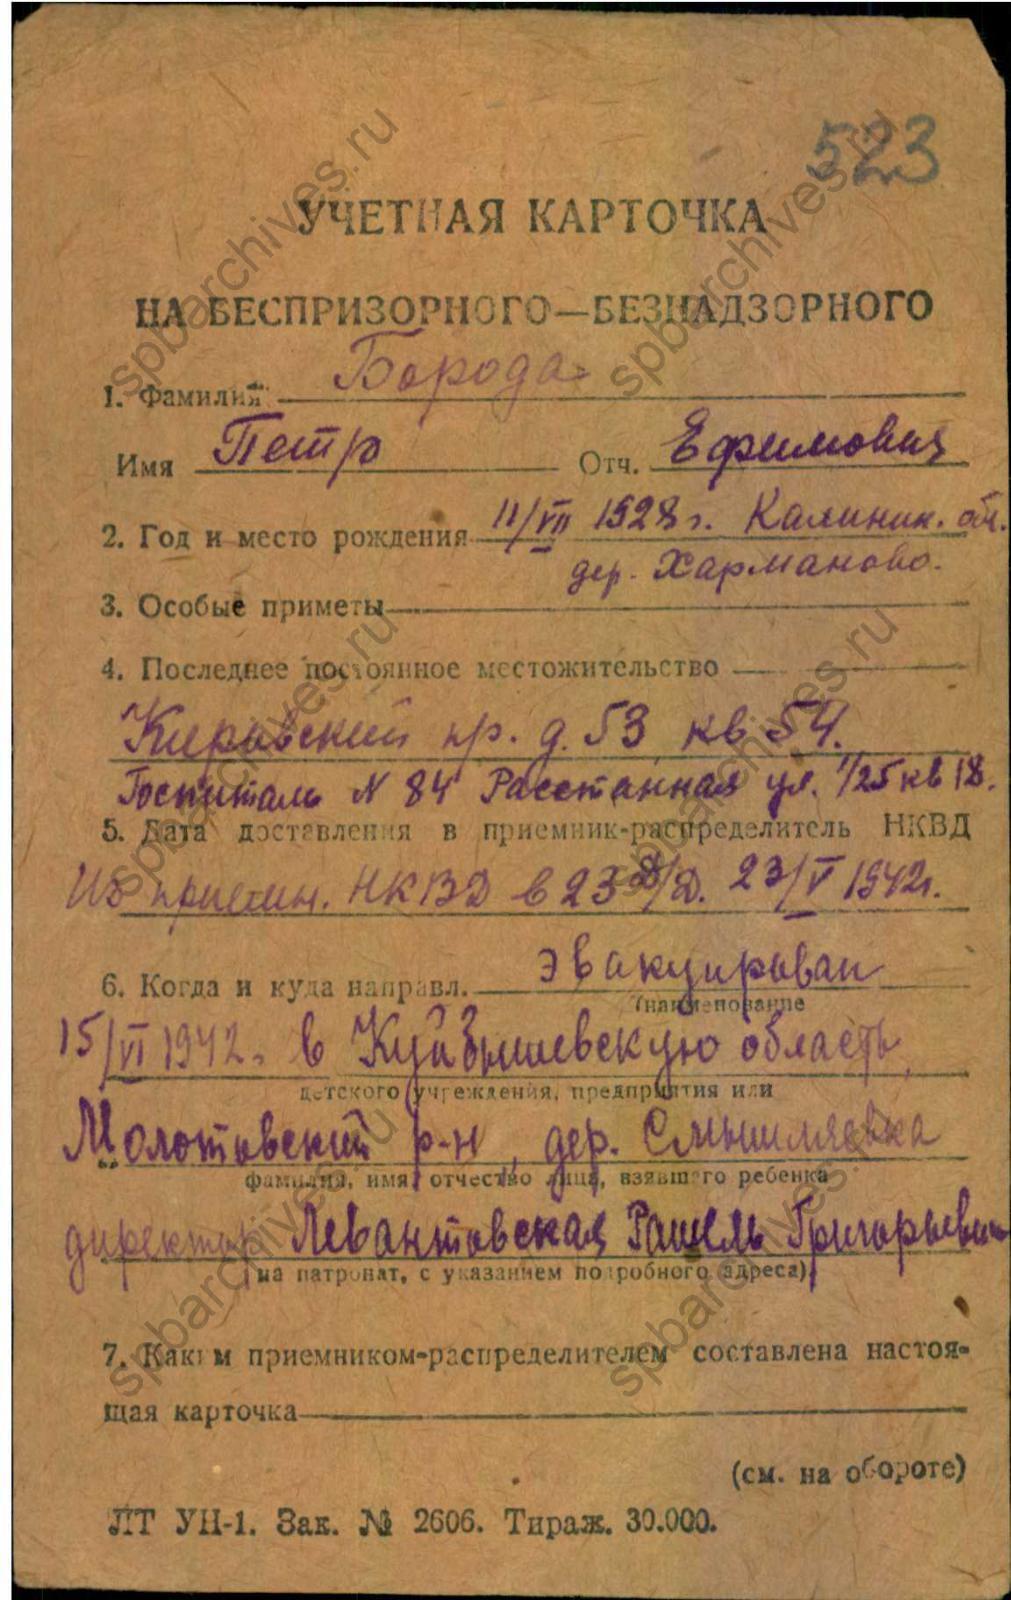 523
УЧЕТНАЯ КАРТОЧКА
НА БЕСПРИЗОРНОГО—БЕЗНАДЗОРНОГО
1. Фамилия Борода
Имя Петр Отч. Ефимович
2. Год и место рождения 11/VII 1928 г. Калинин. обл.
дер. Харманово.
3. Особые приметы
4. Последнее постоянное местожительство
Кировский пр. д. 53 кв 54.
Госпиталь N 84 Расстанная ул. 1/25 кв 18.
5. Дата доставления в приемник-распределитель НКВД
Из приемн. НКВД в 23 д/д. 23/V 1942г.
6. Когда и куда направл. эвакуирован
(наименование
15/VI 1942 г. в Куйбышевскую область,
детского учреждения, предприятия или
Молотовский р-н, дер. Смышляевка
фамилия, имя, отчество лица, взявшего ребенка
директор Левантовская Рашель Григорьевна
на патронат, с указанием подробного адреса)
7. Каким приемником-распределителем составлена настоя-
щая карточка
(см. на обороте)
ЛТ УН-1. Зак. № 2606. Тираж. 30.000.
spbarchives.ru